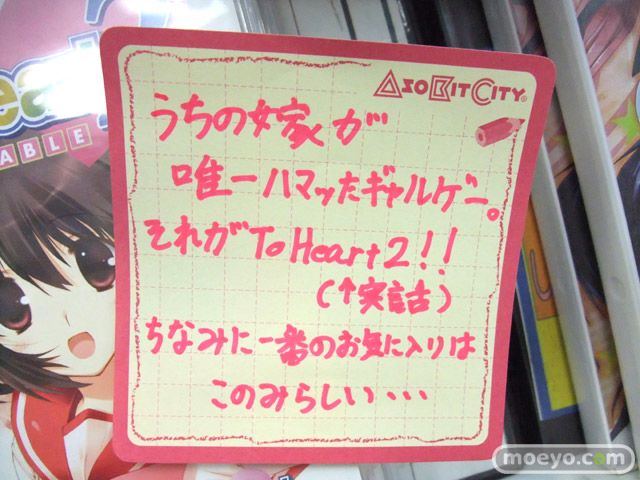 ASOBITCITY
うちの嫁が
唯一ハマッたギャルゲー。
それがToHeart2!!
(↑実話)
ちなみに一番のお気に入りは
このみらしい・・・
ABLE
moeyo.com